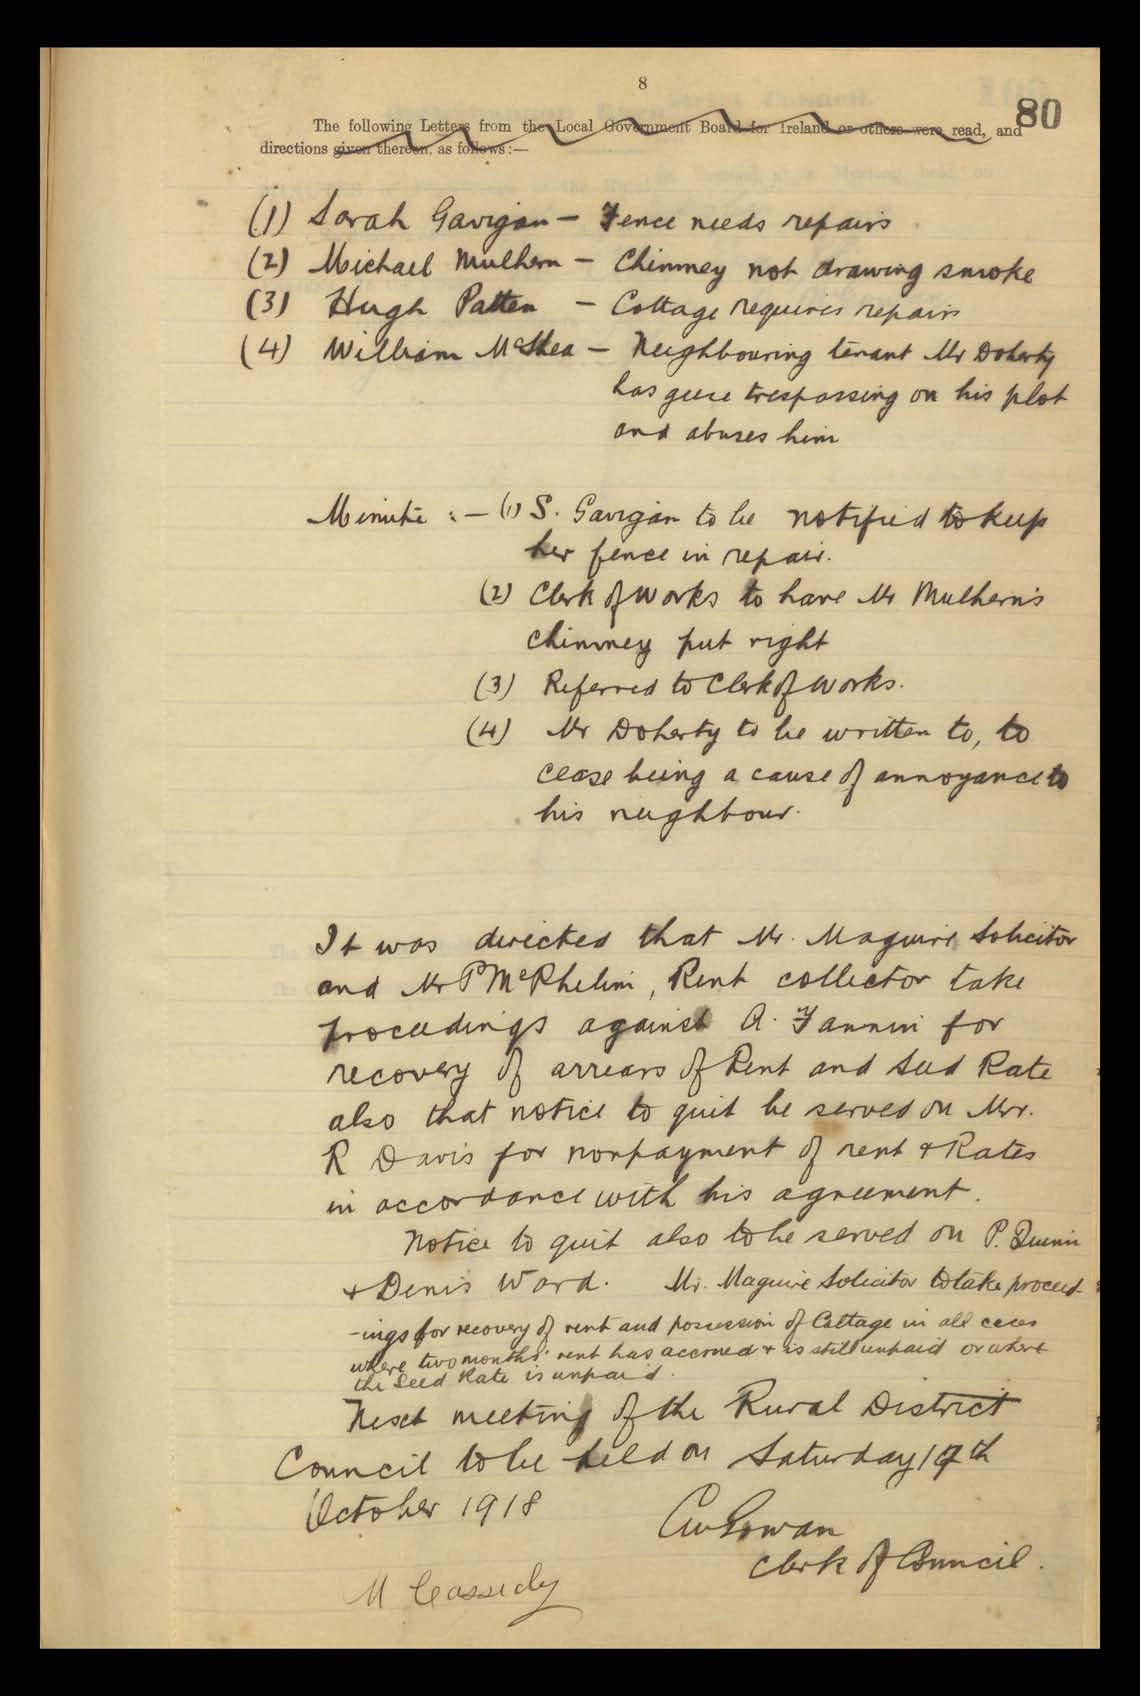 8
80
The following Letters from the Local Government Board for Ireland or others were read, and
directions given thereon, as follows:—
(1) Sarah Gavigan — Fence needs repairs
(2) Michael Mulhern — Chimney not drawing smoke
(3) Hugh Patten — Cottage requires repairs
(4) William McShea — Neighbouring tenant Mr Doherty
has geese trespassing on his plot
and abuses him
Minute :— (1) S. Gavigan to be notified to keep
her fence in repair.
(2) Clerk of Works to have Mr Mulhern's
chimney put right
(3) Referred to Clerk of Works.
(4) Mr Doherty to be written to, to
cease being a cause of annoyance to
his neighbour.
It was directed that Mr. Maguire Solicitor
and Mr P McPhelim, Rent collector take
proceedings against A. Fannin for
recovery of arrears of Rent and Seed Rate
also that notice to quit be served on Mr.
R Davis for nonpayment of rent & Rates
in accordance with his agreement.
Notice to quit also to be served on P. Quinn
& Denis Ward. Mr. Maguire Solicitor to take proceed-
-ings for recovery of rent and possession of Cottage in all cases
where two months' rent has accrued & is still unpaid or where
the Seed Rate is unpaid.
Next meeting of the Rural District
Council to be held on Saturday 19th
October 1918
Clerk of Council.
M Cassidy